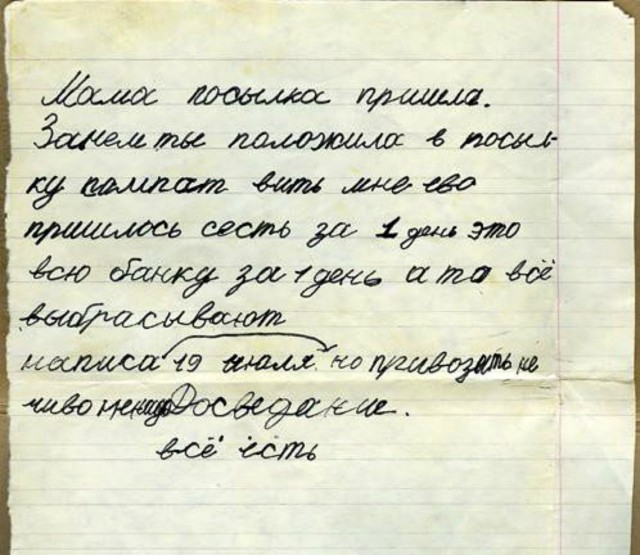 Мама посылка пришла.
Зачем ты положила в посыл-
ку компат вить мне ево
пришлось сесть за 1 день это
всю банку за 1 день а то всё
выбрасывают
написа 19 июля. но привозить не
чиво Досведание.
всё есть